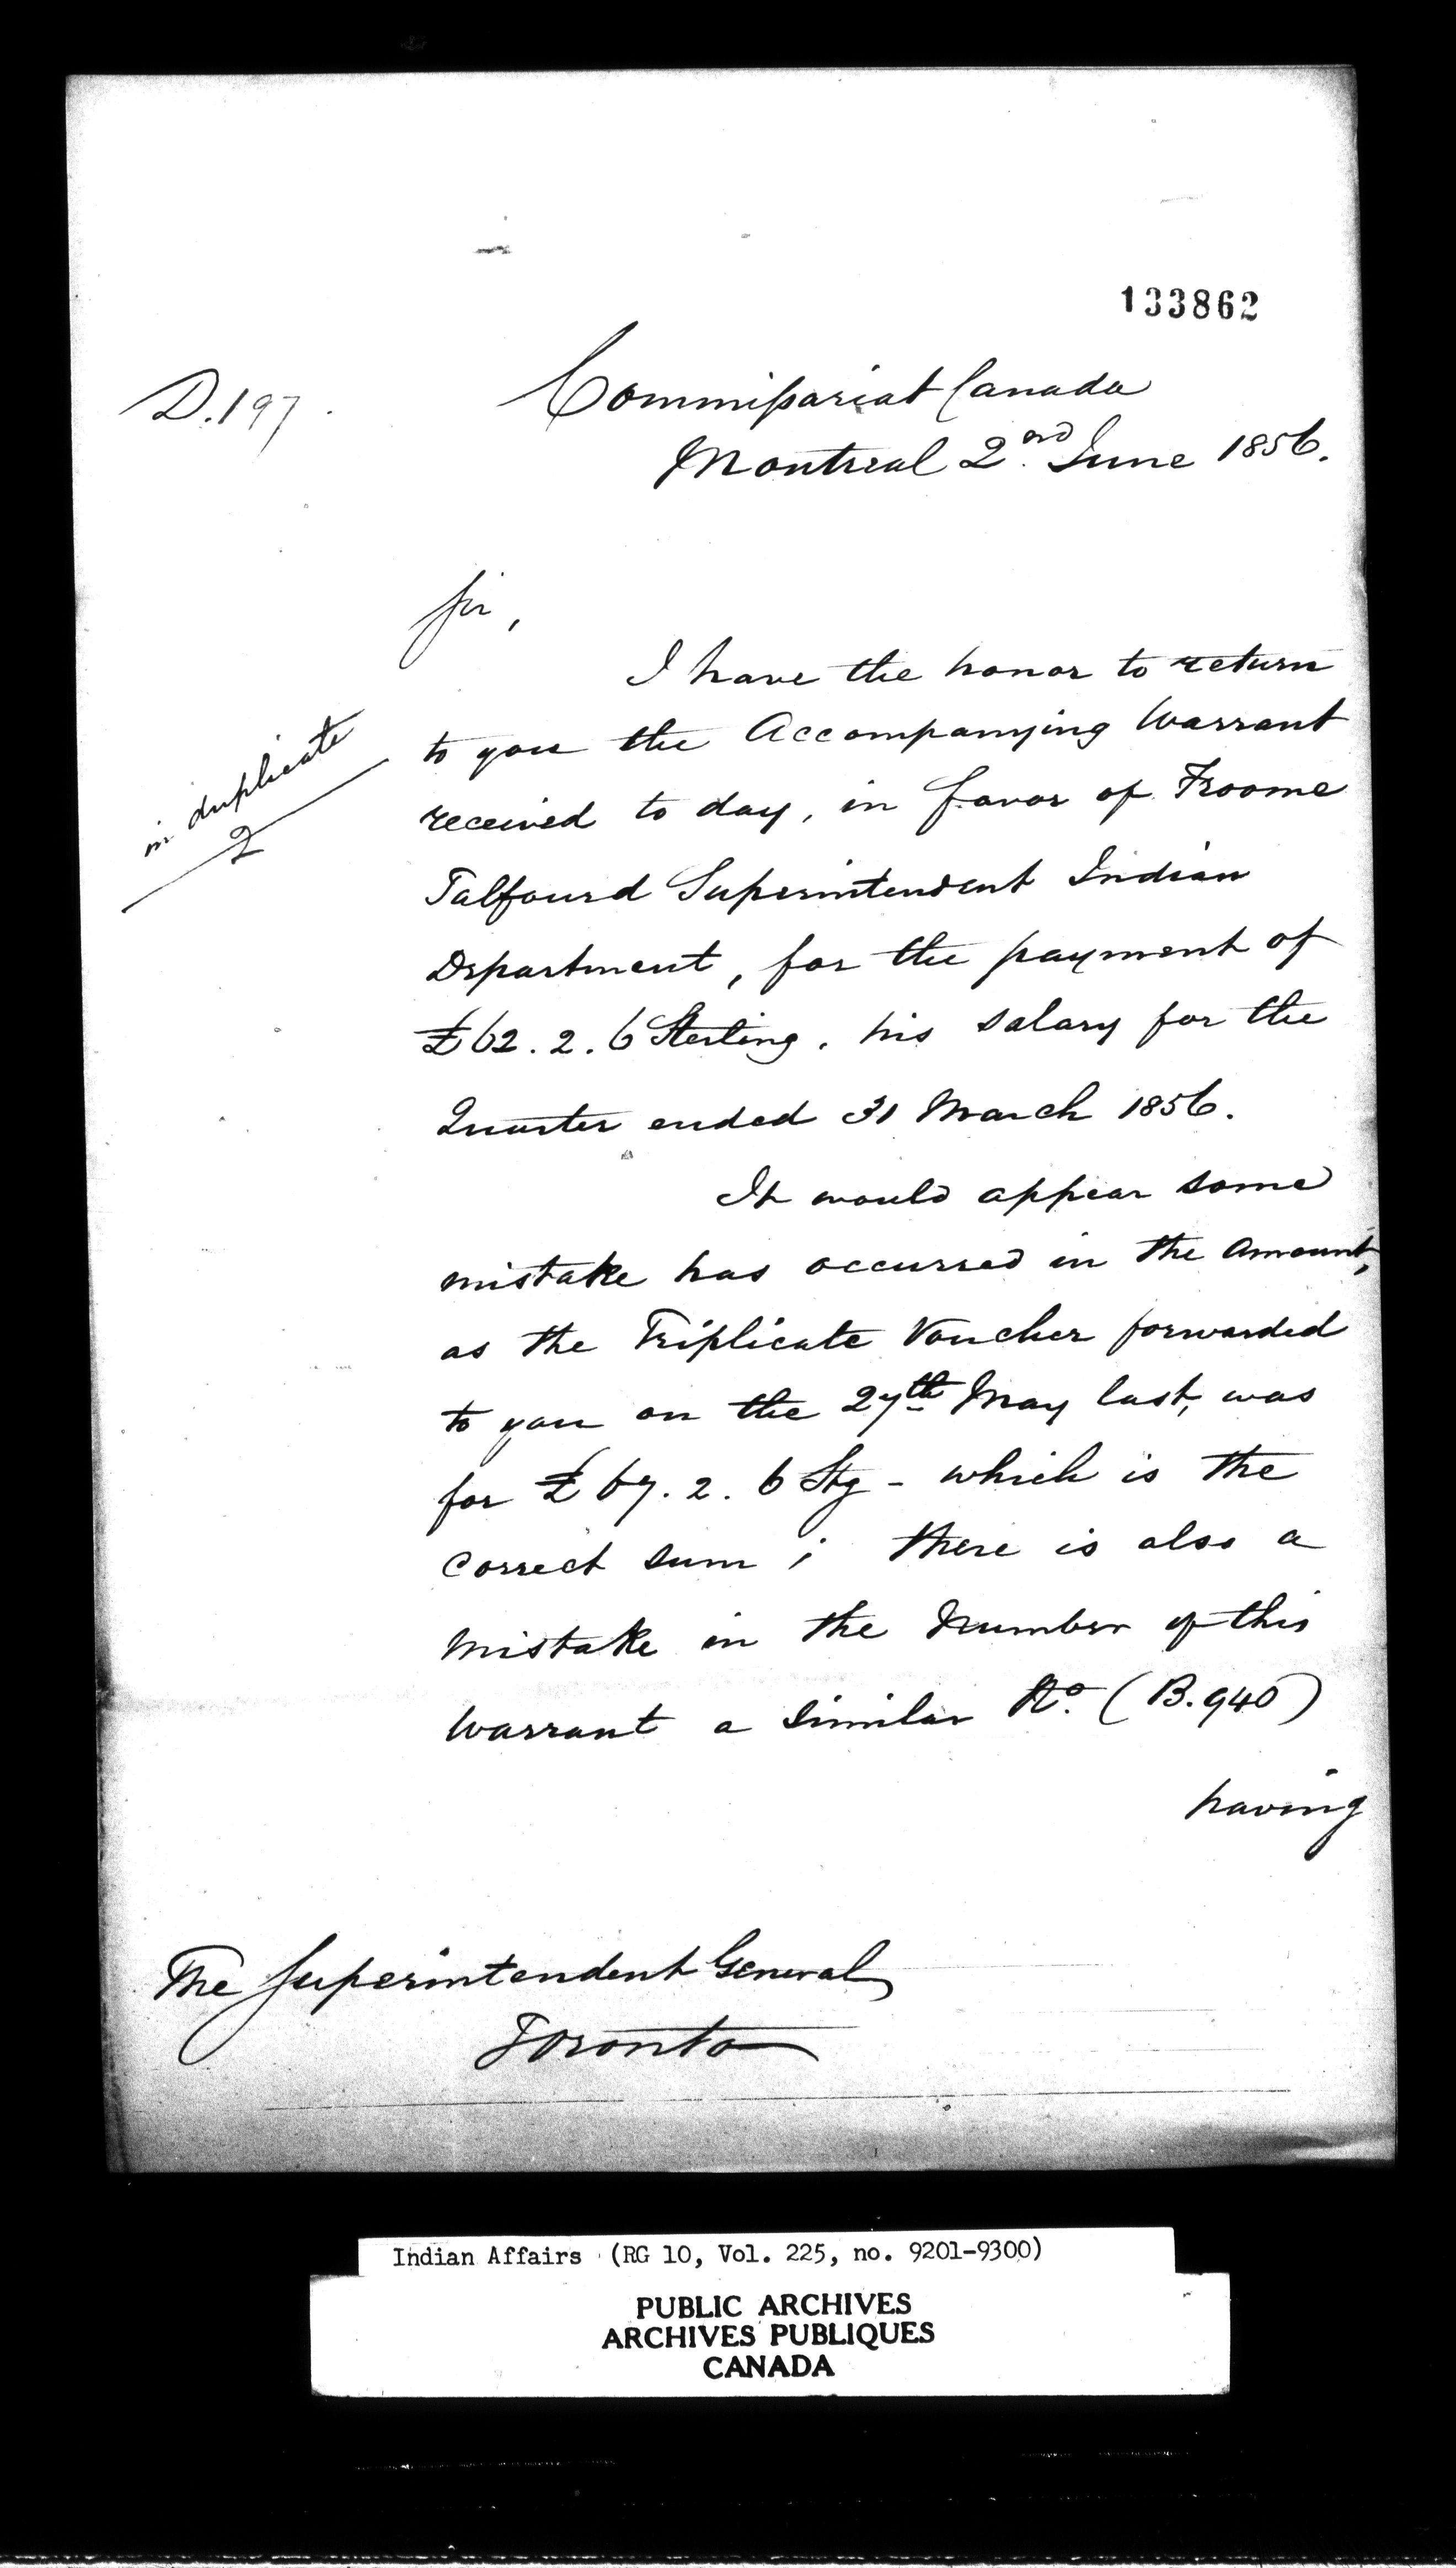 133862
D.197.
Commissariat Canada
Montreal 2nd June 1856.
Sir,
I have the honor to return
to you the Accompanying Warrant
in duplicate
2
received to day, in favor of Froome
Talfourd Superintendent Indian
Department, for the payment of
£62.2.6 Sterling. his salary for the
Quarter ended 31 March 1856.
It would appear some
mistake has occurred in the amount,
as the Triplicate Voucher forwarded
to you on the 27th May last, was
for £67.2.6 Stg - which is the
correct sum; there is also a
mistake in the Number of this
Warrant a similar No. (B.940)
having
The Superintendent General
Toronto
Indian Affairs (RG 10, Vol. 225, no. 9201-9300)
PUBLIC ARCHIVES
ARCHIVES PUBLIQUES
CANADA